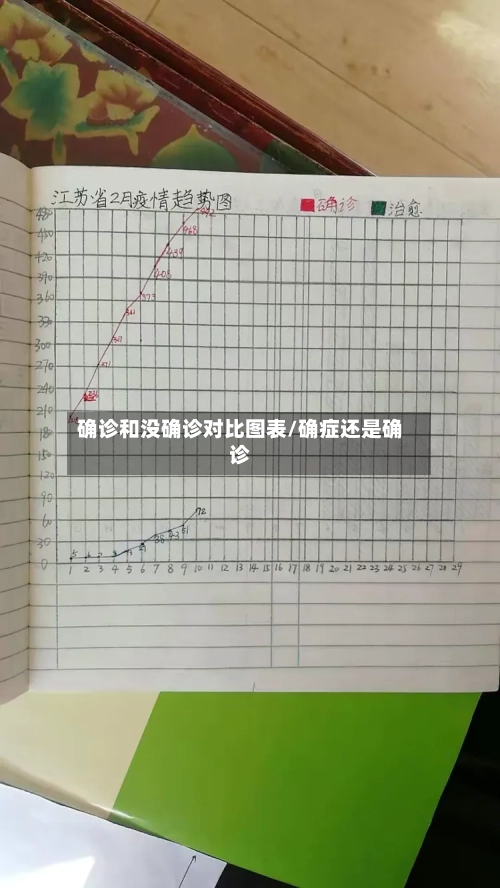 江苏省2月疫情趋势图
确诊
治愈
480
450
420
390
360
330
300
270
240
210
180
150
120
90
60
30
0
492
468
439
408
373
341
307
271
72
51
确诊和没确诊对比图表/确症还是确
诊
1 2 3 4 5 6 7 8 9 10 11 12 13 14 15 16 17 18 19 20 21 22 23 24 25 26 27 28 29